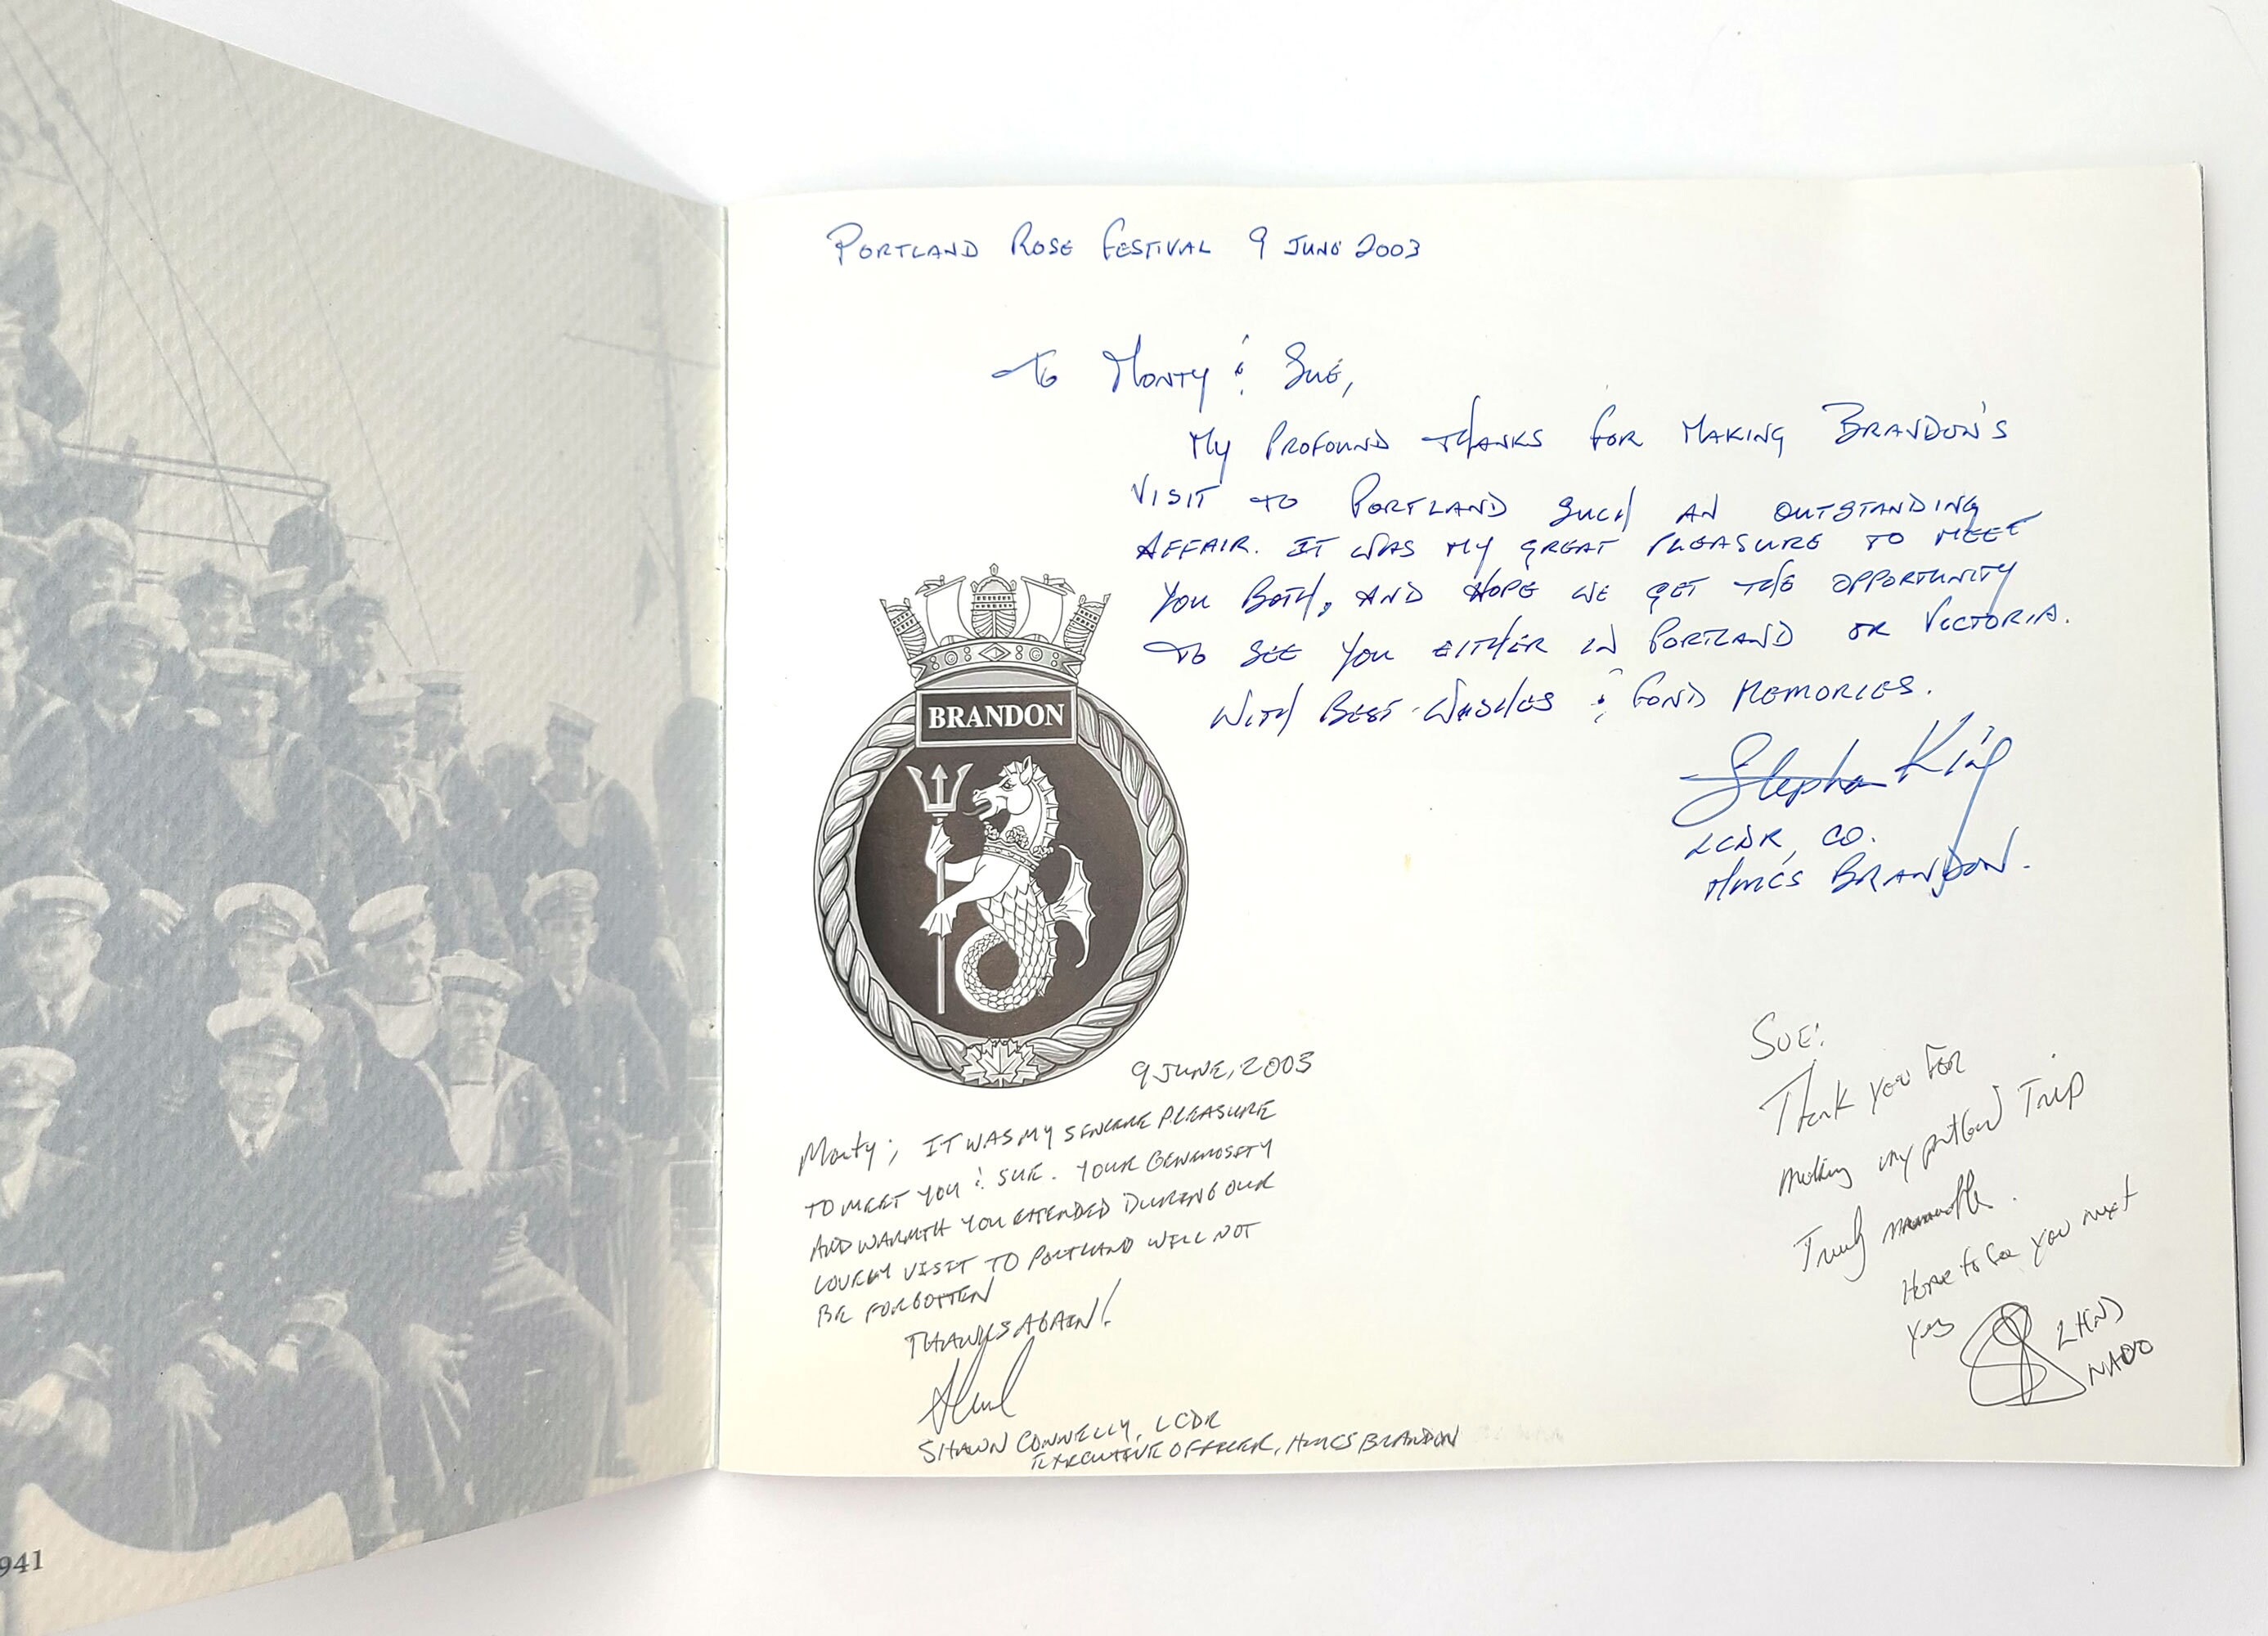 PORTLAND ROSE FESTIVAL 9 JUNE 2003
TO MONTY & SUE,
MY PROFOUND THANKS FOR MAKING BRANDON'S
VISIT TO PORTLAND SUCH AN OUTSTANDING
AFFAIR. IT WAS MY GREAT PLEASURE TO MEET
YOU BOTH, AND HOPE WE GET THE OPPORTUNITY
TO SEE YOU EITHER IN PORTLAND OR VICTORIA.
WITH BEST WISHES & FOND MEMORIES.
Stephen King
LCDR, CO.
HMCS BRANDON.
BRANDON
9 JUNE, 2003
Monty; IT WAS MY SINCERE PLEASURE
TO MEET YOU & SUE. YOUR GENEROSITY
AND WARMTH YOU EXTENDED DURING OUR
LOVELY VISIT TO PORTLAND WILL NOT
BE FORGOTTEN
THANKS AGAIN!
Shawn
SHAWN CONNELLY, LCDR
EXECUTIVE OFFICER, HMCS BRANDON
SUE:
Thank you FOR
making my portland Trip
Truly
Hope to see you next
LS(N)
941